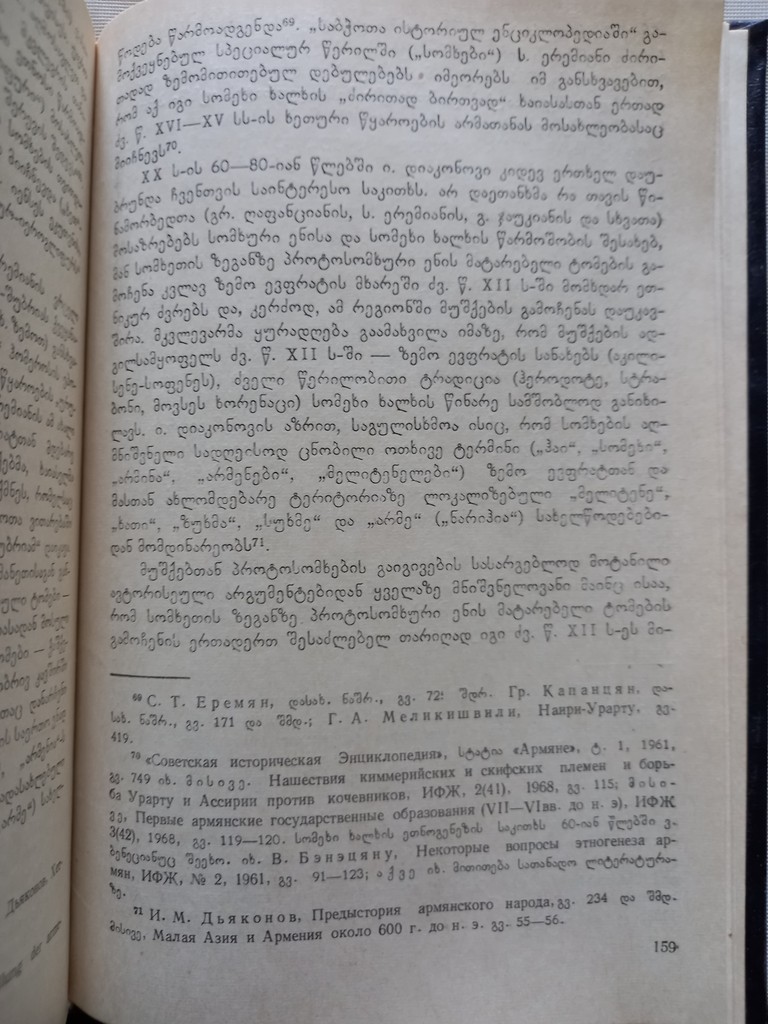 წოდება წარმოადგენდა⁶⁹. „საბჭოთა ისტორიულ ენციკლოპედიაში“ გა-
მოქვეყნებულ სპეციალურ წერილში („სომხები“) ს. ერემიანი ძირი-
თადად ზემომითითებულ დებულებებს იმეორებს იმ განსხვავებით,
რომ აქ იგი სომეხი ხალხის „ძირითად ბირთვად“ ხაიასასთან ერთად
ძვ. წ. XVI—XV სს-ის ხეთური წყაროების არმათანას მოსახლეობასაც
მიიჩნევს⁷⁰.
XX ს-ის 60—80-იან წლებში ი. დიაკონოვი კიდევ ერთხელ დაუ-
ბრუნდა ჩვენთვის საინტერესო საკითხს. არ დაეთანხმა რა თავის წი-
ნამორბედთა (გრ. ღაფანციანის, ს. ერემიანის, გ. ჯაუკიანის და სხვათა)
მოსაზრებებს სომხური ენისა და სომეხი ხალხის წარმოშობის შესახებ,
მან სომხეთის ზეგანზე პროტოსომხური ენის მატარებელი ტომების გა-
მოჩენა კვლავ ზემო ევფრატის მხარეში ძვ. წ. XII ს-ში მომხდარ ეთ-
ნიკურ ძვრებს და, კერძოდ, ამ რეგიონში მუშქების გამოჩენას დაუკავ-
შირა. მკვლევარმა ყურადღება გაამახვილა იმაზე, რომ მუშქების ად-
გილსამყოფელს ძვ. წ. XII ს-ში — ზემო ევფრატის სანახებს (აკილი-
სენე-სოფენეს), ძველი წერილობითი ტრადიცია (ჰეროდოტე, სტრა-
ბონი, მოვსეს ხორენაცი) სომეხი ხალხის წინარე სამშობლოდ განიხი-
ლავს. ი. დიაკონოვის აზრით, საგულისხმოა ისიც, რომ სომხების აღ-
მნიშვნელი სადღეისოდ ცნობილი ოთხივე ტერმინი („ჰაი“, „სომეხი“,
„არმინა“, „არმენები“, „მელიტენელები“) ზემო ევფრატთან და
მასთან ახლომდებარე ტერიტორიაზე ლოკალიზებული „მელიტენე“,
„ხათი“, „ზუხმა“, „სუხმე“ და „არმე“ („ნარიჰია“) სახელწოდებები-
დან მომდინარეობს⁷¹.
მუშქებთან პროტოსომხების გაიგივების სასარგებლოდ მოტანილი
ავტორისეული არგუმენტებიდან ყველაზე მნიშვნელოვანი მაინც ისაა,
რომ სომხეთის ზეგანზე პროტოსომხური ენის მატარებელი ტომების
გამოჩენის ერთადერთ შესაძლებელ თარიღად იგი ძვ. წ. XII ს-ეს მი-
⁶⁹ С. Т. Еремян, დასახ. ნაშრ., გვ. 72; შდრ. Гр. Капанцян, და-
სახ. ნაშრ., გვ. 171 და შმდ.; Г. А. Меликишвили, Наири-Урарту, გვ.
419.
⁷⁰ «Советская историческая Энциклопедия», სტატია «Армяне», ტ. 1, 1961,
გვ. 749 იხ. მისივე. Нашествия киммерийских и скифских племен и борь-
ба Урарту и Ассирии против кочевников, ИФЖ, 2(41), 1968, გვ. 115; მისი-
ვე, Первые армянские государственные образования (VII—VIвв. до н. э), ИФЖ
3(42), 1968, გვ. 119—120. სომეხი ხალხის ეთნოგენეზის საკითხს 60-იან წლებში ვ.
ბენეციანუც შეეხო. იხ. В. Бэнэцяну, Некоторые вопросы этногенеза ар-
мян, ИФЖ, № 2, 1961, გვ. 91—123; აქვე იხ. მითითება სათანადო ლიტერატურა-
ზე.
⁷¹ И. М. Дьяконов, Предыстория армянского народа, გვ. 234 და შმდ.
მისივე, Малая Азия и Армения около 600 г. до н. э. გვ. 55—56.
159